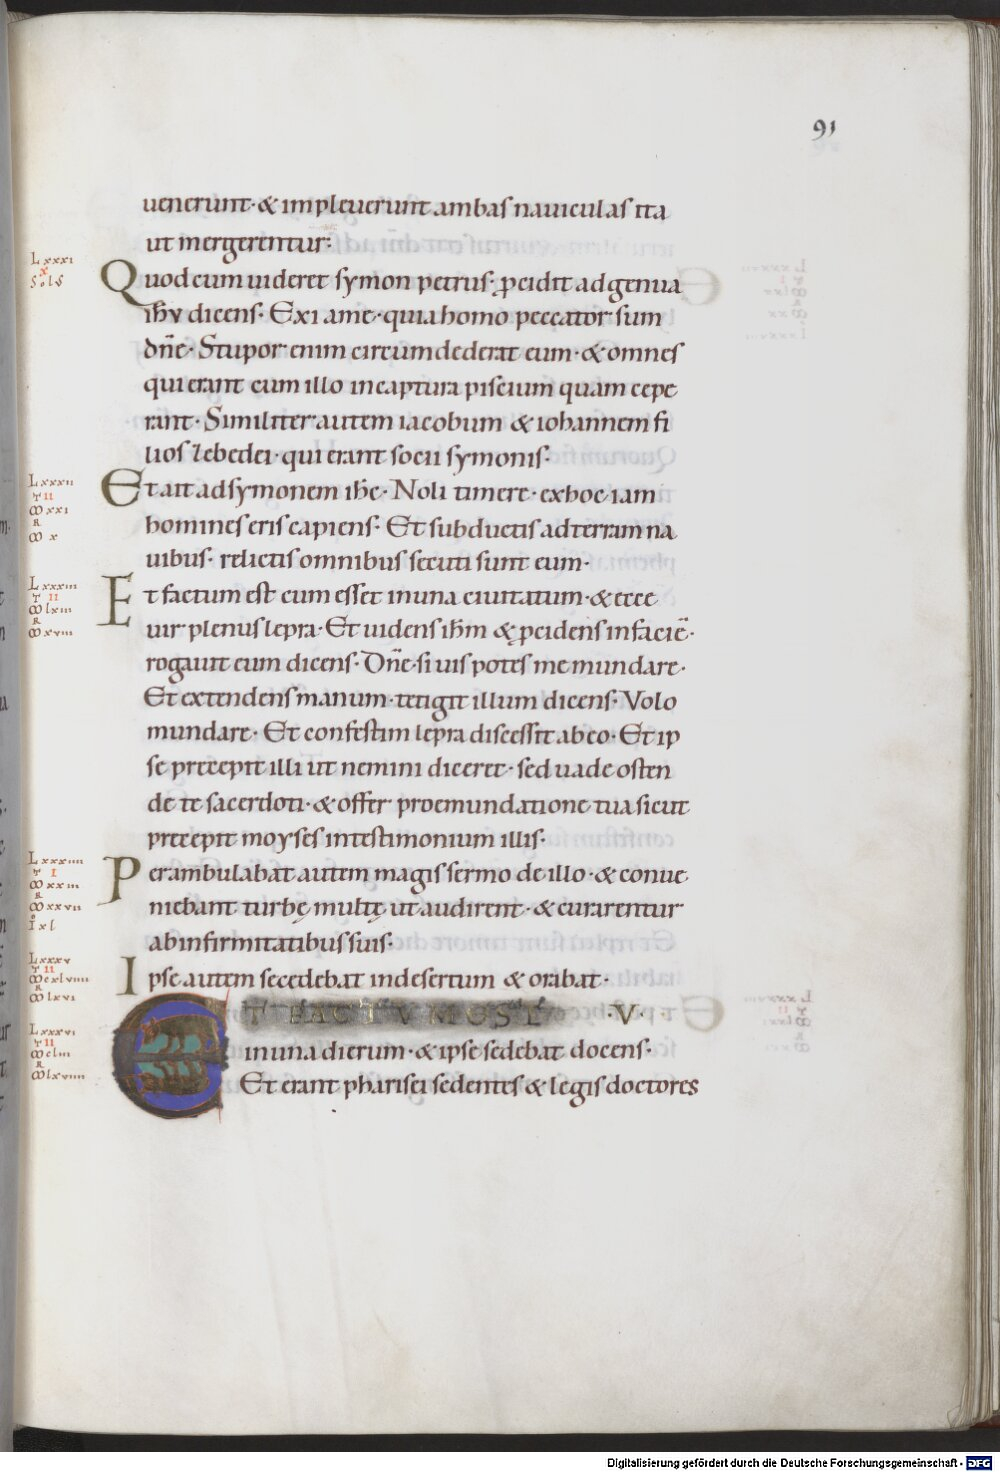 91
uenerunt· & impleuerunt ambas nauiculas ita
ut mergerentur·
Lxxxi
x
Solus
Quod cum uideret symon petrus· ꝓcidit ad genua
ihv dicens· Exi a me· quia homo peccator sum
dn̄e· Stupor enim circumdederat eum· & omnes
qui erant cum illo in captura piscium quam cepe
rant· Similiter autem iacobum & iohannem fi
lios zebedei· qui erant socii symonis·
Lxxxii
T II
M xxi
R
M x
Et ait ad symonem ihc· Noli timere· ex hoc iam
homines eris capiens· Et subductis ad terram na
uibus· relictis omnibus secuti sunt eum·
Lxxxiii
T II
M lxiii
R
M xviii
Et factum est cum esset in una ciuitatum· & ecce
uir plenus lepra· Et uidens ihm & ꝓcidens in faciē·
rogauit eum dicens· Dn̄e· si uis potes me mundare·
Et extendens manum· tetigit illum dicens· Volo
mundare· Et confestim lepra discessit ab eo· Et ip
se precepit illi ut nemini diceret· sed uade osten
de te sacerdoti· & offer pro emundatione tua sicut
precepit moyses in testimonium illis·
Lxxxiiii
T I
M xxiii
R
M xxvii
I xl
Perambulabat autem magis sermo de illo· & conue
niebant turbę multę ut audirent· & curarentur
ab infirmitatibus suis·
Lxxxv
T II
M cxlviiii
R
M lxvi
Ipse autem secedebat in desertum & orabat·
ET FACTVM EST ·V·
Lxxxvi
T II
M clii
R
M lxviiii
in una dierum· & ipse sedebat docens·
Et erant pharisei sedentes & legis doctores
Digitalisierung gefördert durch die Deutsche Forschungsgemeinschaft - DFG